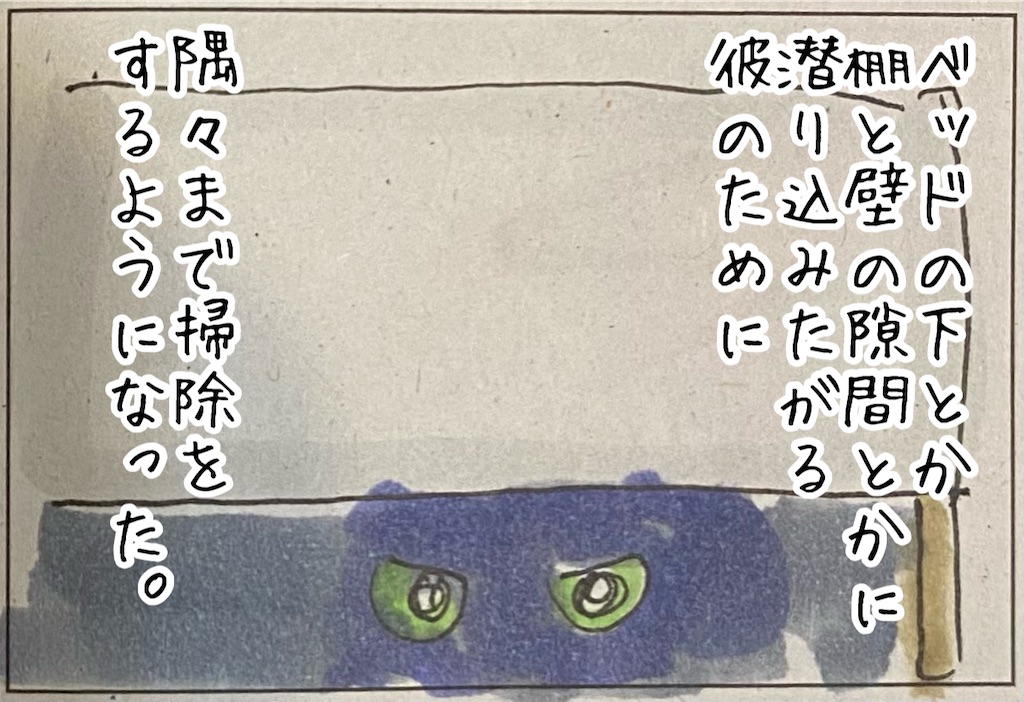 ベッドの下とか
棚と壁の隙間とかに
潜り込みたがる
彼のために
隅々まで掃除を
するようになった。